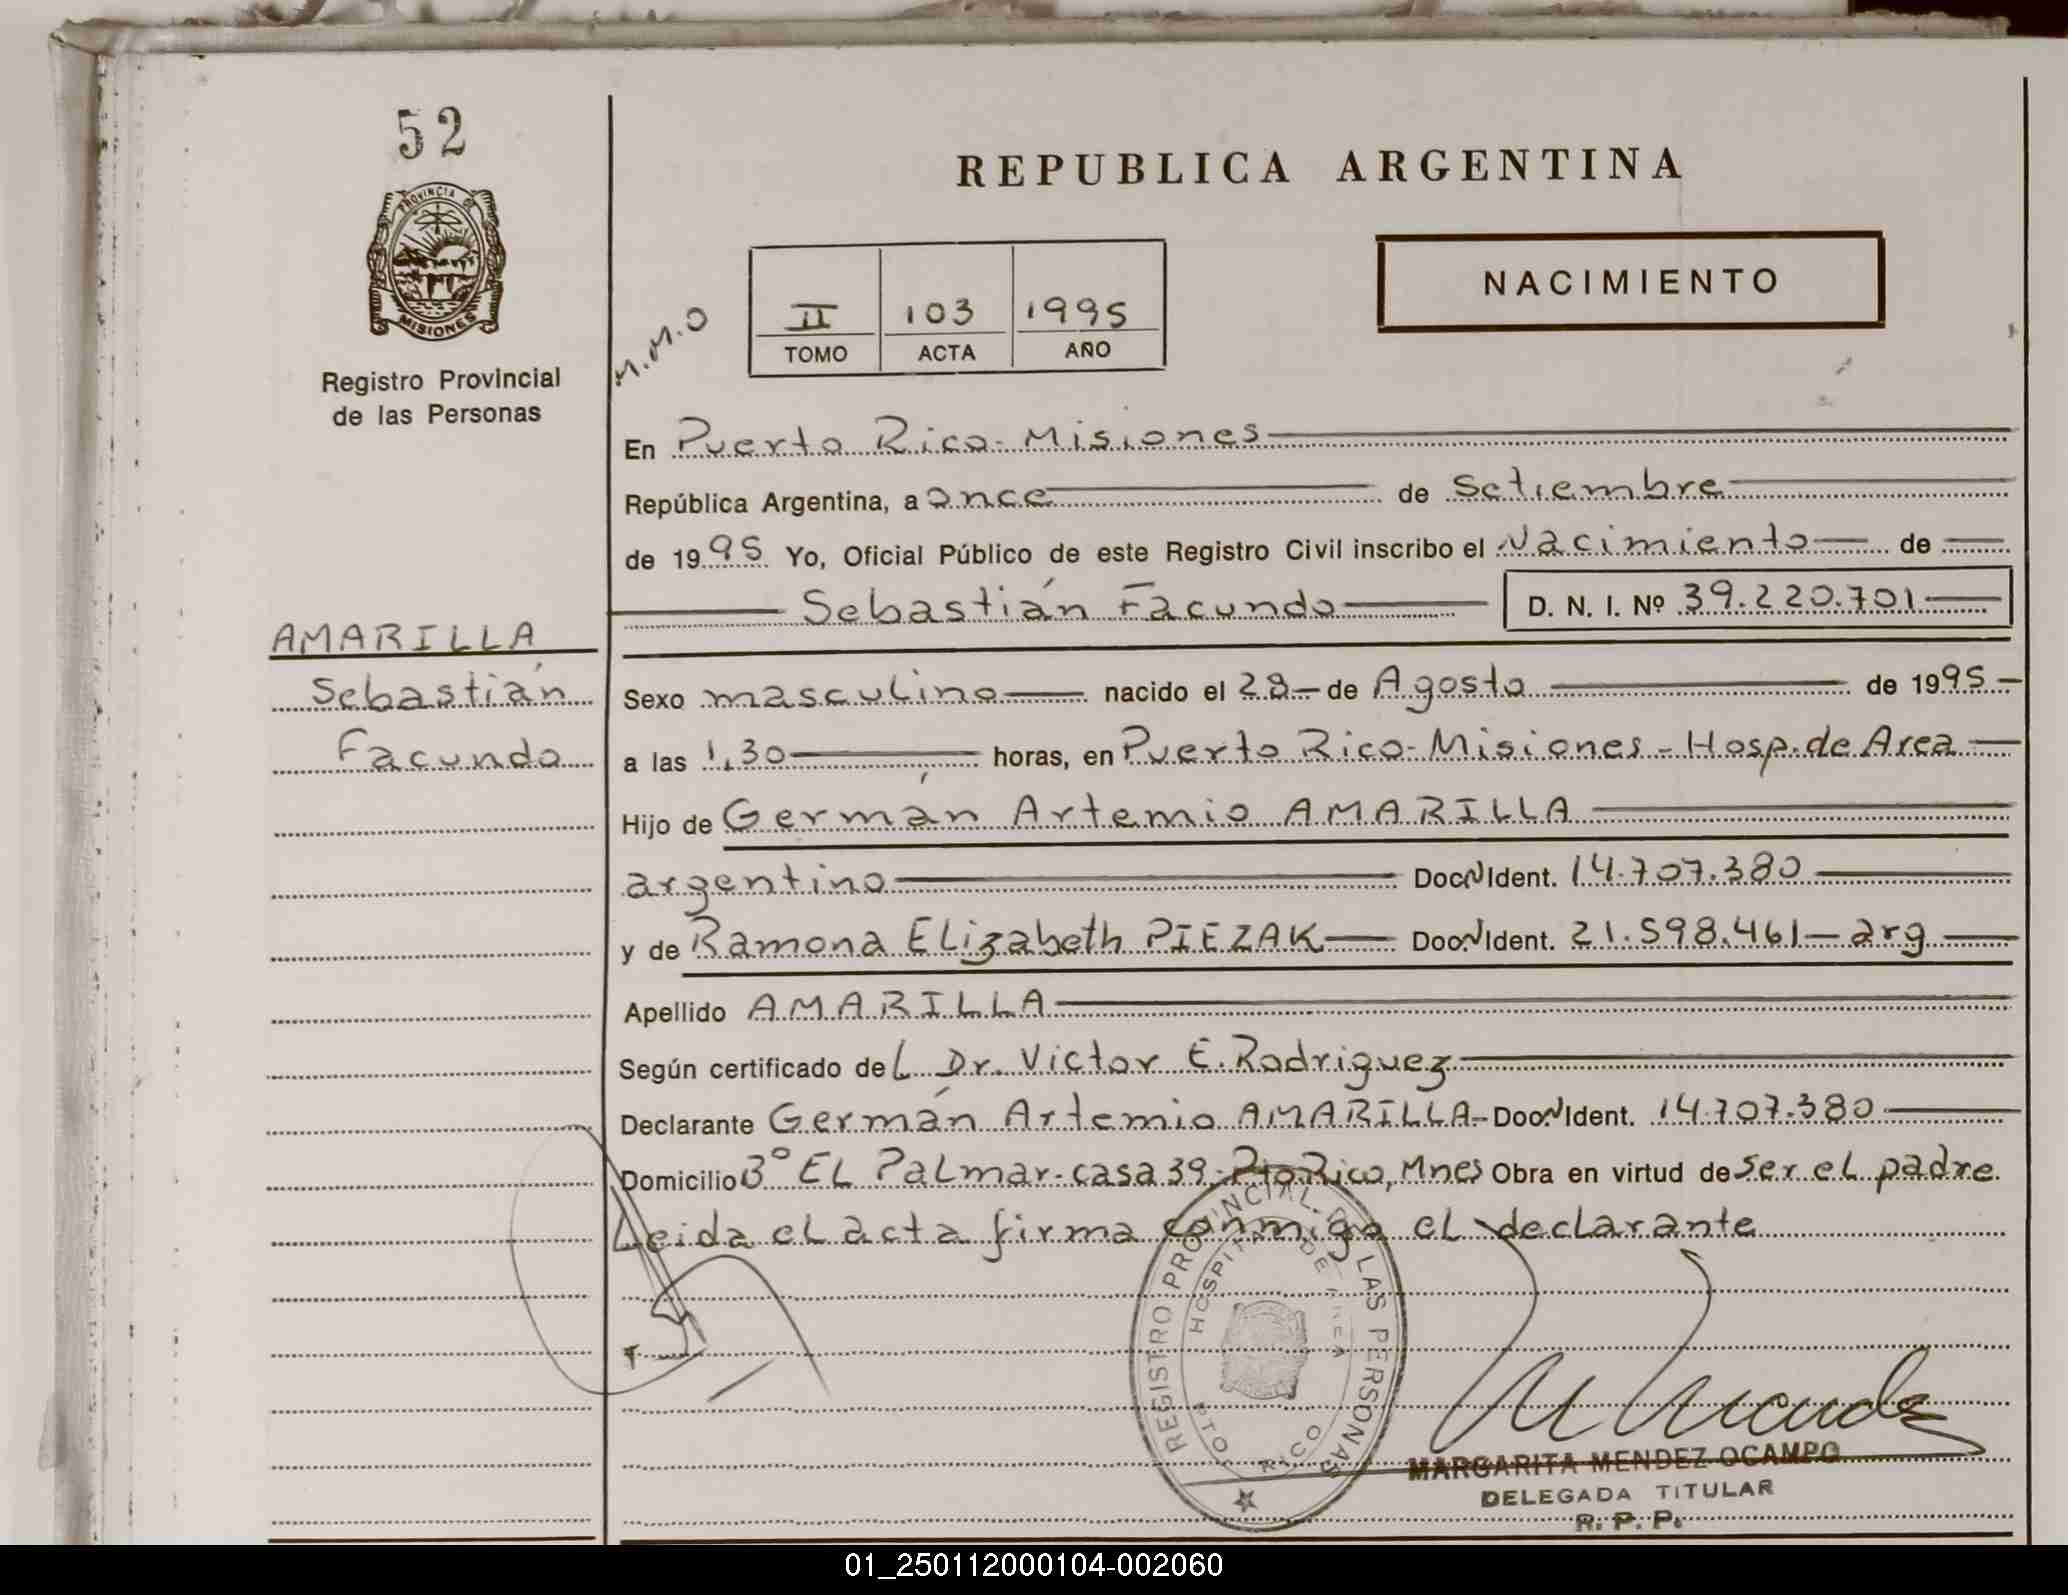 52
PROVINCIA DE
MISIONES
Registro Provincial
de las Personas
REPUBLICA ARGENTINA
NACIMIENTO
M.M.O
II 103 1995
TOMO ACTA AÑO
En Puerto Rico-Misiones
República Argentina, a once de Setiembre
de 1995 Yo, Oficial Público de este Registro Civil inscribo el Nacimiento de
Sebastián Facundo D. N. I. Nº 39.220.701
AMARILLA
Sebastián
Facundo
Sexo masculino nacido el 28 de Agosto de 1995
a las 1,30 horas, en Puerto Rico-Misiones-Hosp. de Area
Hijo de Germán Artemio AMARILLA
argentino Doc N Ident. 14.707.380
y de Ramona ELizabeth PIEZAK Doc N Ident. 21.598.461-arg
Apellido AMARILLA
Según certificado del Dr. Victor E. Rodriguez
Declarante Germán Artemio AMARILLA- Doc N Ident. 14.707.380
Domicilio Bº EL Palmar-casa 39-Pto Rico, Mnes Obra en virtud de ser el padre
Leida el acta firma conmigo el declarante
REGISTRO PROVINCIAL DE LAS PERSONAS
HOSPITAL DE AREA
PTO RICO
MARGARITA MENDEZ OCAMPO
DELEGADA TITULAR
R. P. P.
01_250112000104-002060